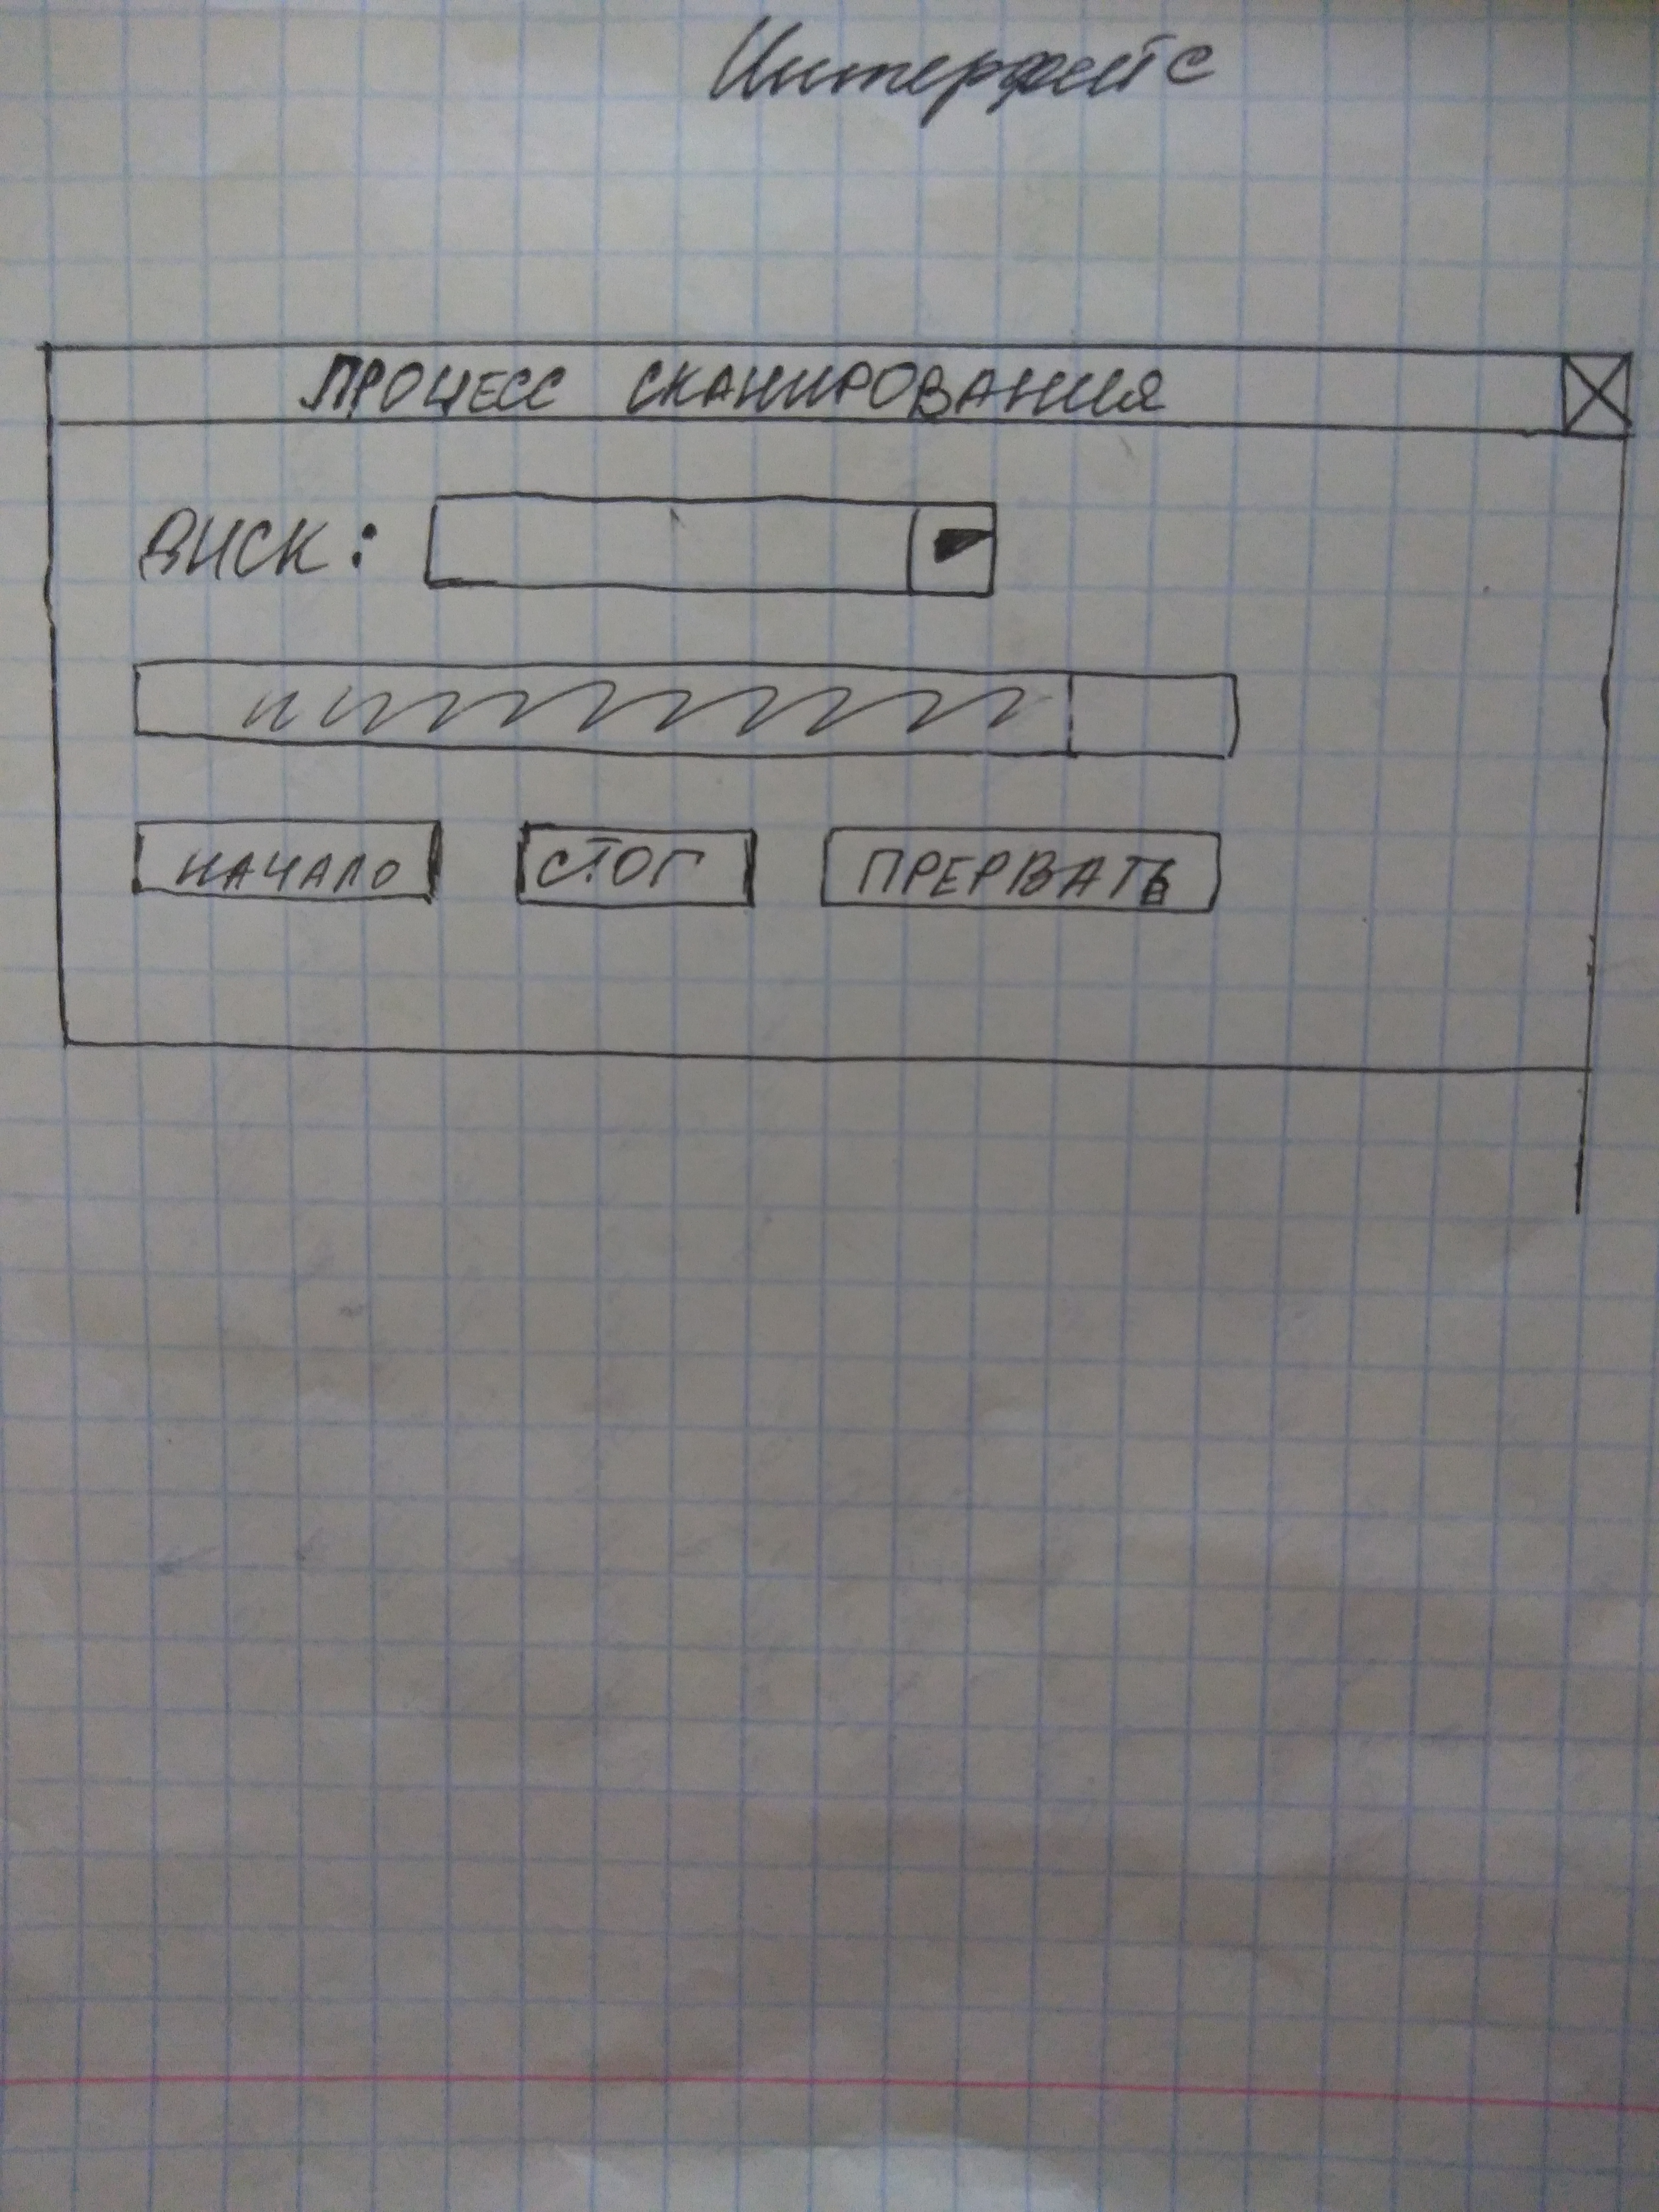 Интерфейс
ПРОЦЕСС СКАНИРОВАНИЯ
ДИСК:
НАЧАЛО СТОП ПРЕРВАТЬ